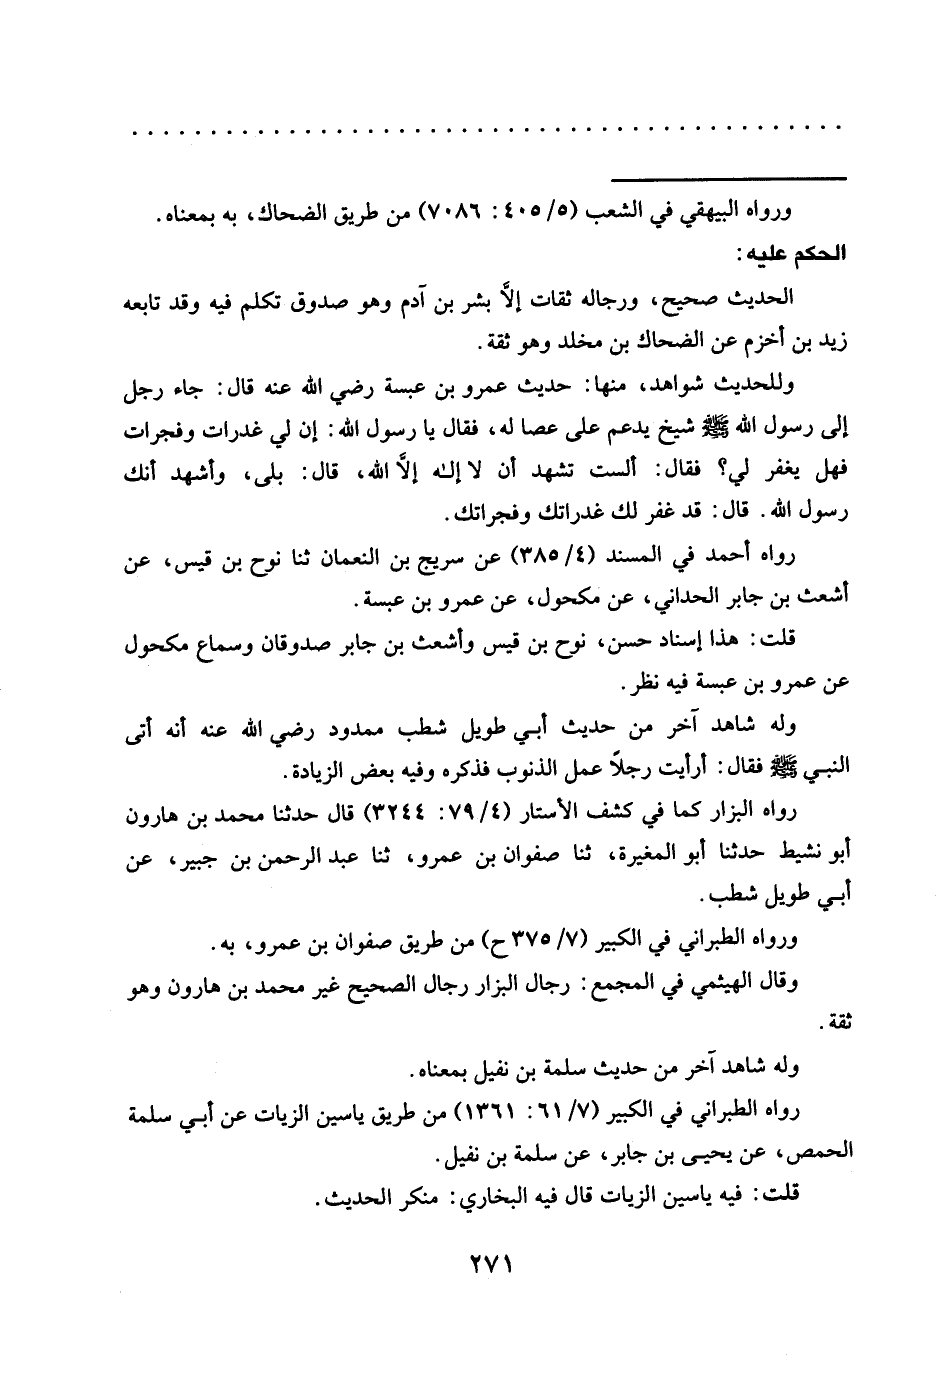 ورواه البيهقي في الشعب (٥/ ٤٠٥: ٧٠٨٦) من طريق الضحاك، به بمعناه.
الحكم عليه:
الحديث صحيح، ورجاله ثقات إلاَّ بشر بن آدم وهو صدوق تكلم فيه وقد تابعه
زيد بن أخزم عن الضحاك بن مخلد وهو ثقة.
وللحديث شواهد، منها: حديث عمرو بن عبسة رضي الله عنه قال: جاء رجل
إلى رسول الله ﷺ شيخ يدعم على عصا له، فقال يا رسول الله: إن لي غدرات وفجرات
فهل يغفر لي؟ فقال: ألست تشهد أن لا إلٰه إلاَّ الله، قال: بلى، وأشهد أنك
رسول الله. قال: قد غفر لك غدراتك وفجراتك.
رواه أحمد في المسند (٤/ ٣٨٥) عن سريج بن النعمان ثنا نوح بن قيس، عن
أشعث بن جابر الحداني، عن مكحول، عن عمرو بن عبسة.
قلت: هذا إسناد حسن، نوح بن قيس وأشعث بن جابر صدوقان وسماع مكحول
عن عمرو بن عبسة فيه نظر.
وله شاهد آخر من حديث أبي طويل شطب ممدود رضي الله عنه أنه أتى
النبي ﷺ فقال: أرأيت رجلاً عمل الذنوب فذكره وفيه بعض الزيادة.
رواه البزار كما في كشف الأستار (٤/ ٧٩: ٣٢٤٤) قال حدثنا محمد بن هارون
أبو نشيط حدثنا أبو المغيرة، ثنا صفوان بن عمرو، ثنا عبد الرحمن بن جبير، عن
أبي طويل شطب.
ورواه الطبراني في الكبير (٧/ ٣٧٥ ح) من طريق صفوان بن عمرو، به.
وقال الهيثمي في المجمع: رجال البزار رجال الصحيح غير محمد بن هارون وهو
ثقة.
وله شاهد آخر من حديث سلمة بن نفيل بمعناه.
رواه الطبراني في الكبير (٧/ ٦١: ١٣٦١) من طريق ياسين الزيات عن أبي سلمة
الحمص، عن يحيى بن جابر، عن سلمة بن نفيل.
قلت: فيه ياسين الزيات قال فيه البخاري: منكر الحديث.
٢٧١